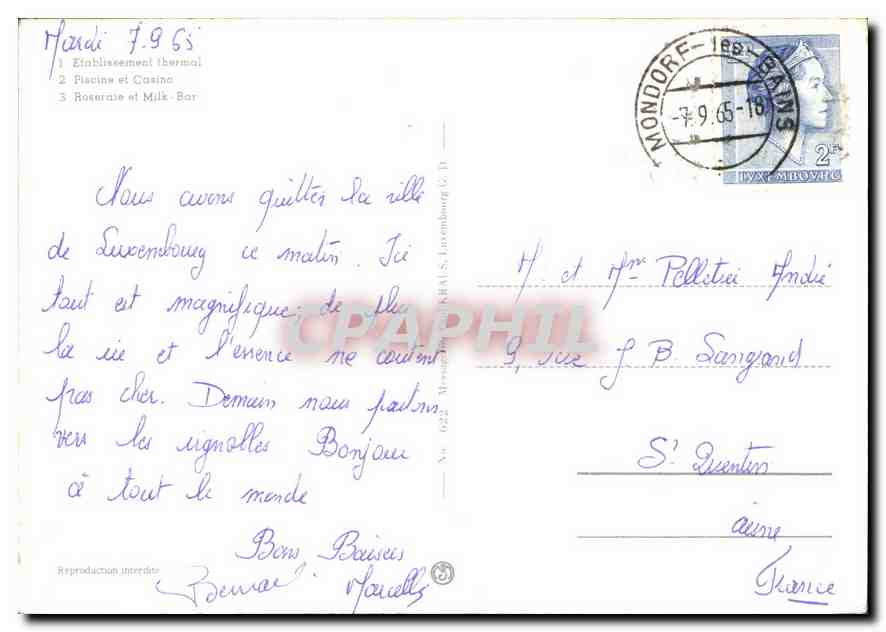 Mardi 7.9.65
1 Etablissement thermal
2 Piscine et Casino
3 Roseraie et Milk-Bar
Nous avons quittés la ville
de Luxembourg ce matin. Ici
tout est magnifique, de plus
la vie et l'essence ne coutent
pas cher. Demain nous partons
vers les vignobles Bonjour
à tout le monde
Bons Baisers
Marcelle
Reproduction interdite
No. 622 Messageries Paul KRAUS, Luxembourg G. D.
MONDORF-les-BAINS
-7.9.65-18
2F
LUXEMBOURG
M. et Mme Pelletier André
9, rue J B. Langrand
St Quentin
aisne
France
CPAPHIL